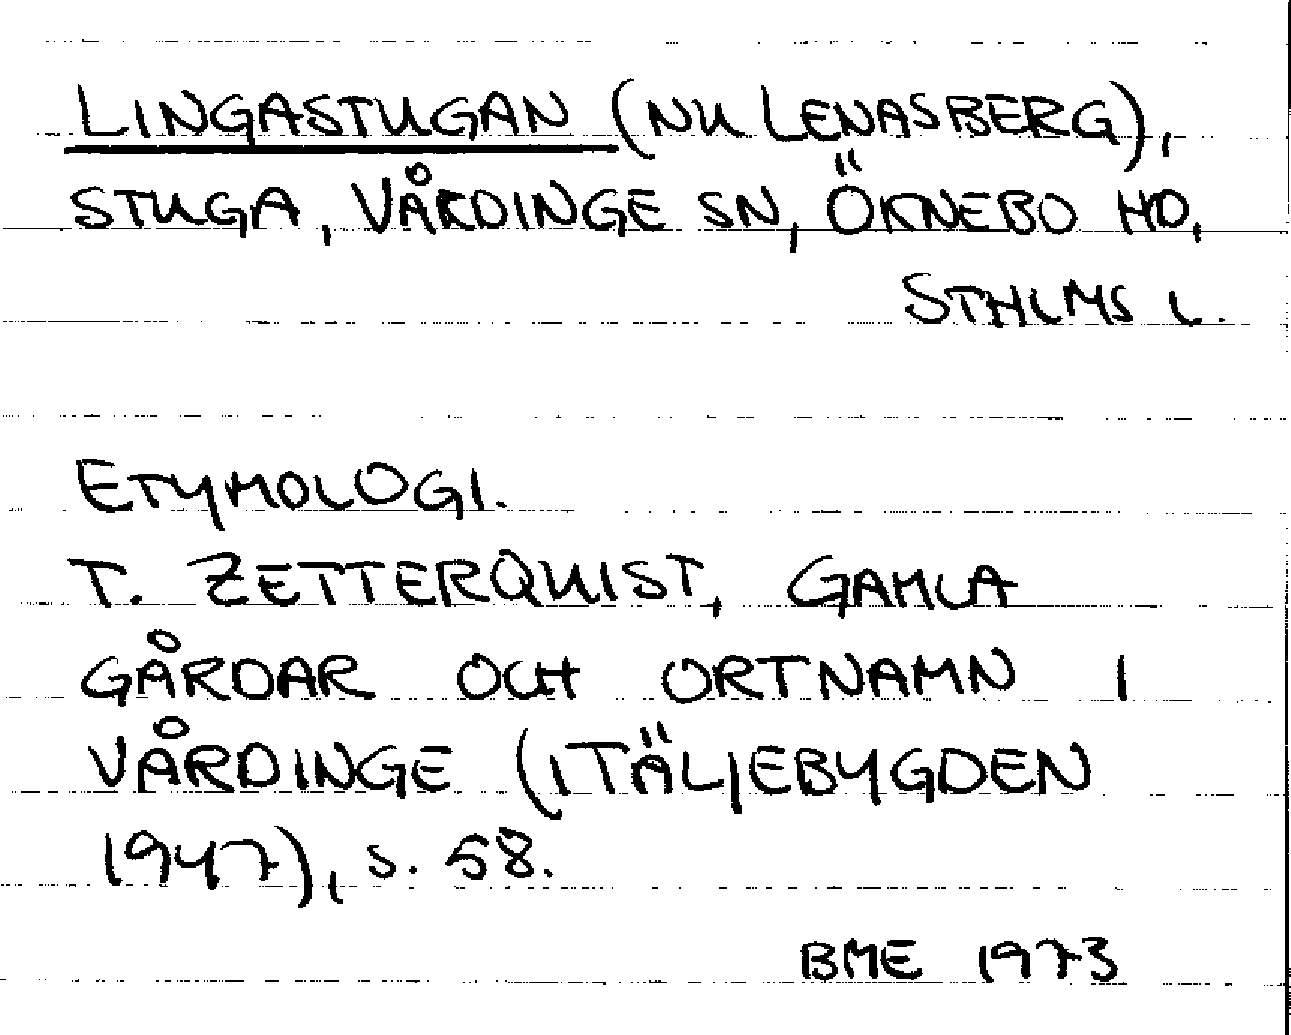 LINGASTUGAN (NU LENASBERG),
STUGA, VÅRDINGE SN, ÖKNEBO HD,
STHLMS L.
ETYMOLOGI.
T. ZETTERQUIST, GAMLA
GÅRDAR OCH ORTNAMN I
VÅRDINGE (I TÄLJEBYGDEN
1947), S. 58.
BME 1973